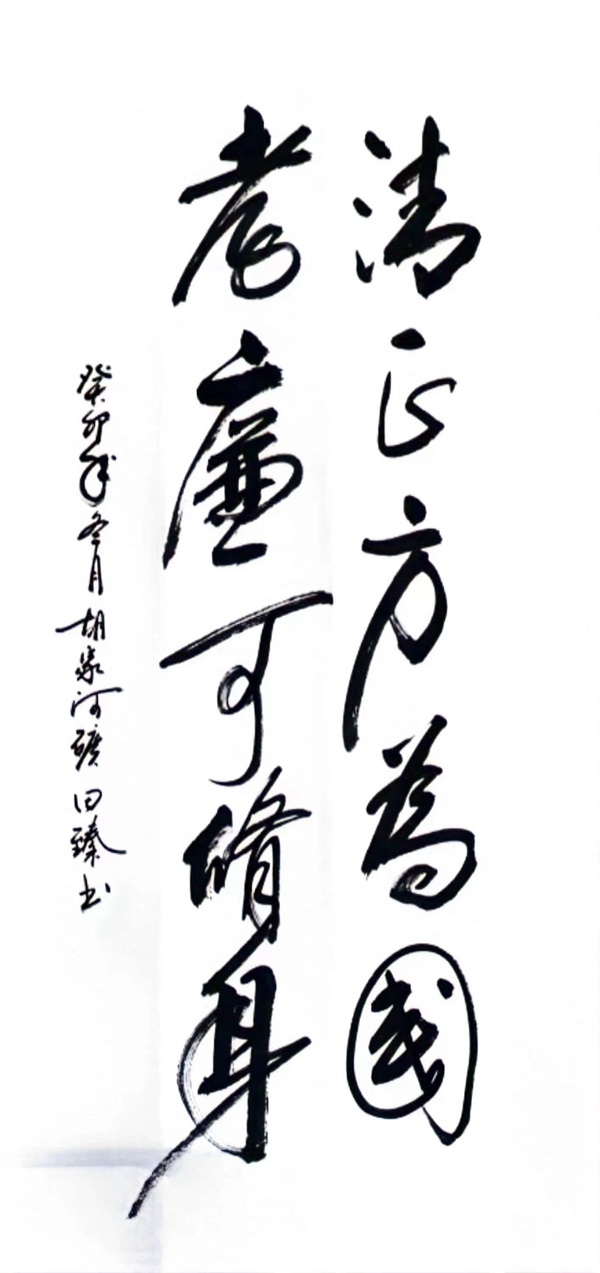 清正方為國
孝廉可脩身
癸卯年冬月胡家河礦田臻书